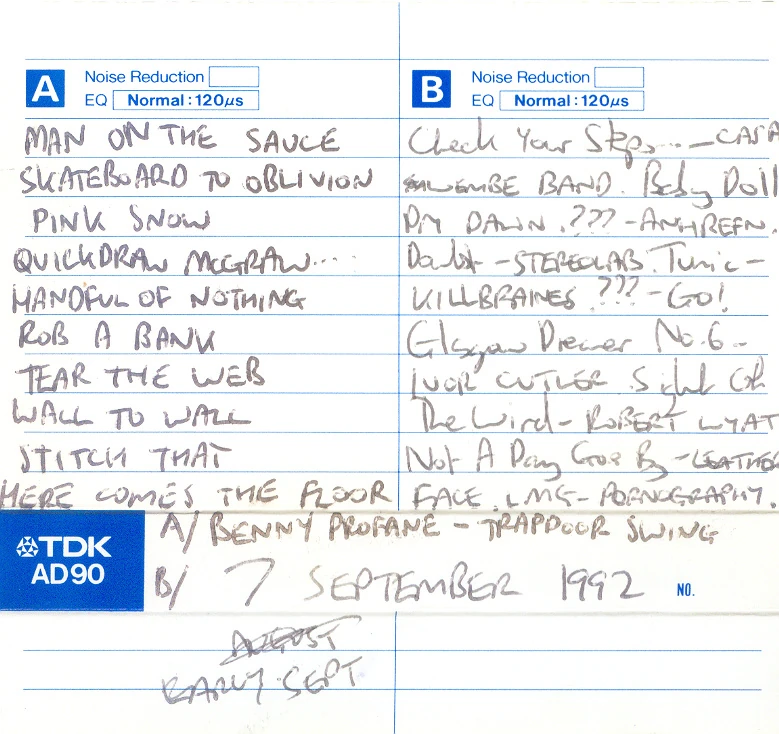 A Noise Reduction
EQ Normal:120µs
MAN ON THE SAUCE
SKATEBOARD TO OBLIVION
PINK SNOW
QUICKDRAW MCGRAW....
HANDFUL OF NOTHING
ROB A BANK
TEAR THE WEB
WALL TO WALL
STITCH THAT
HERE COMES THE FLOOR
B Noise Reduction
EQ Normal:120µs
Check Your Steps... - CASA
BAND. Baby Doll
PM DAWN. ??? - ANHREFN.
Doubt - STEREOLAB. Tunic -
KILLBRAINES ??? - GO!
Glasgow Dreamer No.6 -
IVOR CUTLER. Sight Of
The Wind - ROBERT WYAT
Not A Day Goes By - LEATHER
FACE. LMG - PORNOGRAPHY.
TDK
AD90
A/ BENNY PROFANE - TRAPDOOR SWING
B/ 7 SEPTEMBER 1992 NO.
AUGUST
EARLY SEPT